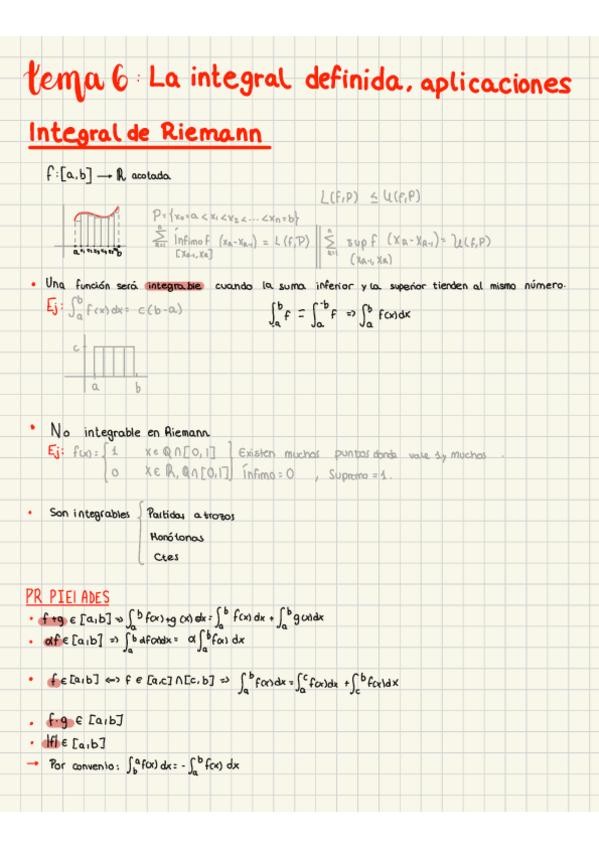 tema 6: La integral definida, aplicaciones
Integral de Riemann
f:[a,b] → ℝ acotada
L(f,P) ≤ U(f,P)
P={x₀=a<x₁<x₂<...<xₙ=b}
∑ ínfimo f (xₖ-xₖ₋₁) = L(f,P) || ∑ sup f (xₖ-xₖ₋₁) = U(f,P)
[xₖ₋₁,xₖ] (xₖ₋₁,xₖ)
a b
• Una función será integrable cuando la suma inferior y la superior tienden al mismo número.
Ej: ∫ₐᵇ f(x)dx = c(b-a) ∫ₐᵇ f = ∫ₐ⁻ᵇ f ⇒ ∫ₐᵇ f(x)dx
c
a b
• No integrable en Riemann
Ej: f(x)= { 1 x∈Q∩[0,1] Existen muchos puntos donde vale 1 y muchos .
0 x∈ℝ, Q∩[0,1] Ínfimo=0 , Supremo=1.
• Son integrables { Partidas a trozos
Monótonas
Ctes
PR PIEDADES
• f+g ∈ [a,b] ⇒ ∫ₐᵇ f(x)+g(x) dx = ∫ₐᵇ f(x) dx + ∫ₐᵇ g(x)dx
• αf ∈ [a,b] ⇒ ∫ₐᵇ αf(x)dx = α ∫ₐᵇ f(x) dx
• f ∈ [a,b] ⟺ f ∈ [a,c]∩[c,b] ⇒ ∫ₐᵇ f(x)dx = ∫ₐᶜ f(x)dx + ∫꜀ᵇ f(x)dx
• f·g ∈ [a,b]
• |f| ∈ [a,b]
→ Por convenio: ∫ᵇᵃ f(x) dx = - ∫ₐᵇ f(x) dx